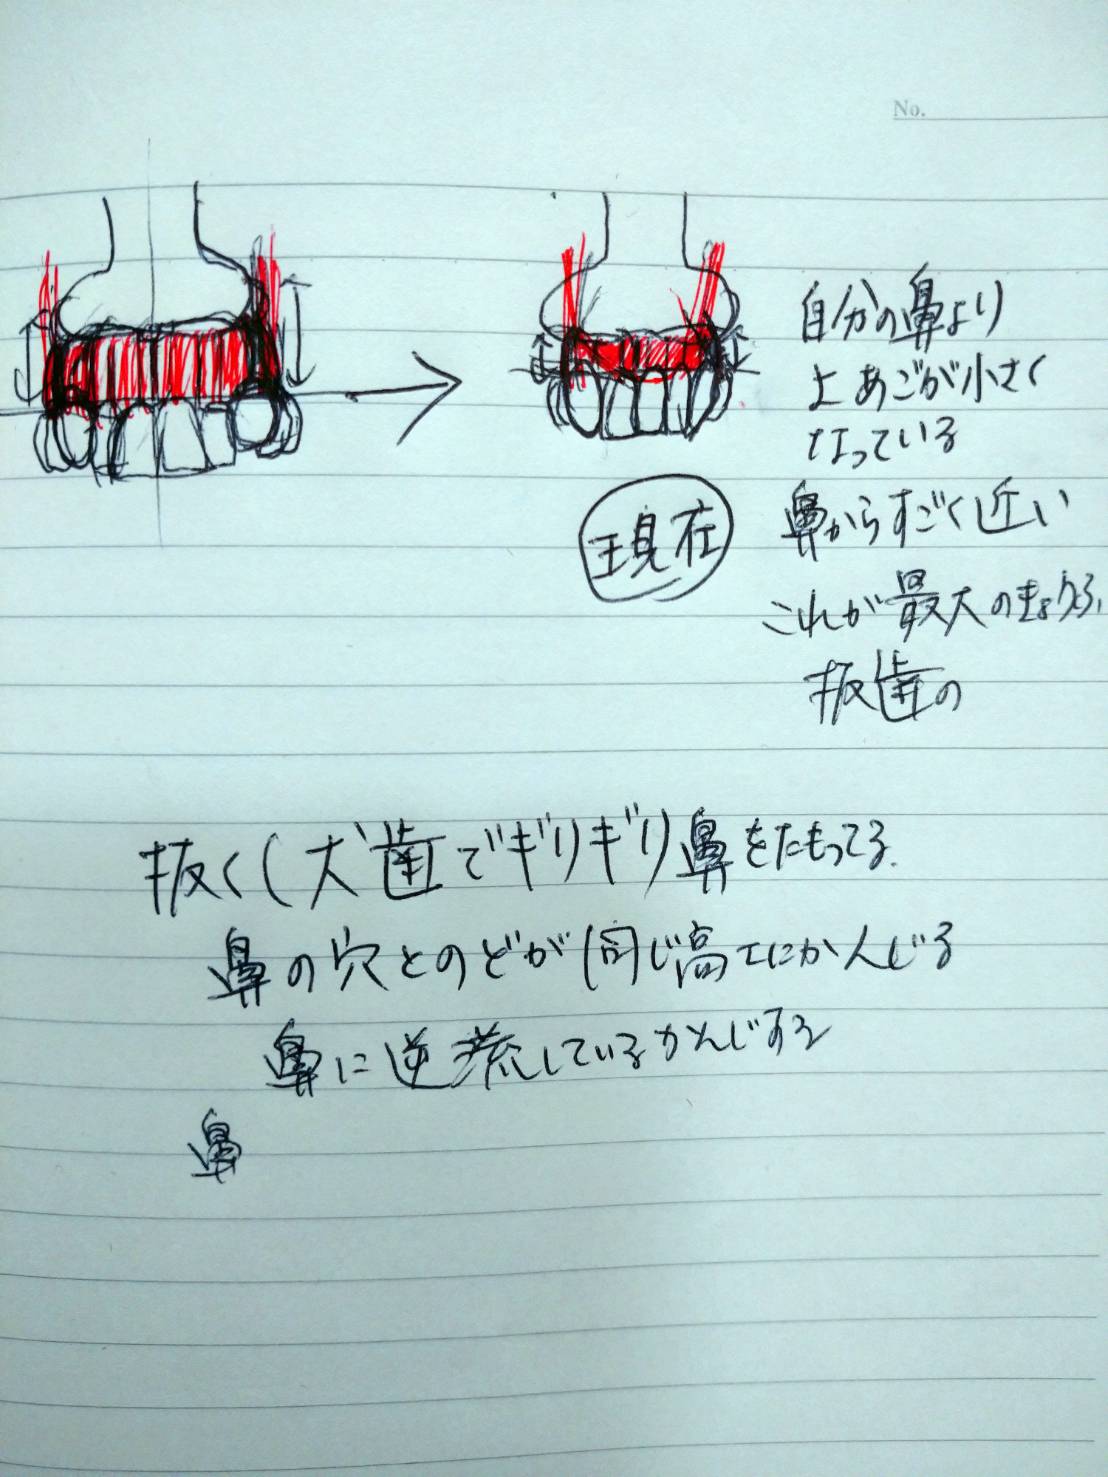 No.
自分の鼻より
上あごが小さく
なっている
現在
鼻からすごく近い
これが最大の
抜歯の
抜く(犬歯でギリギリ鼻をたもってる.
鼻の穴とのどが同じ高てにかんじる
鼻に逆流しているかんじする
鼻